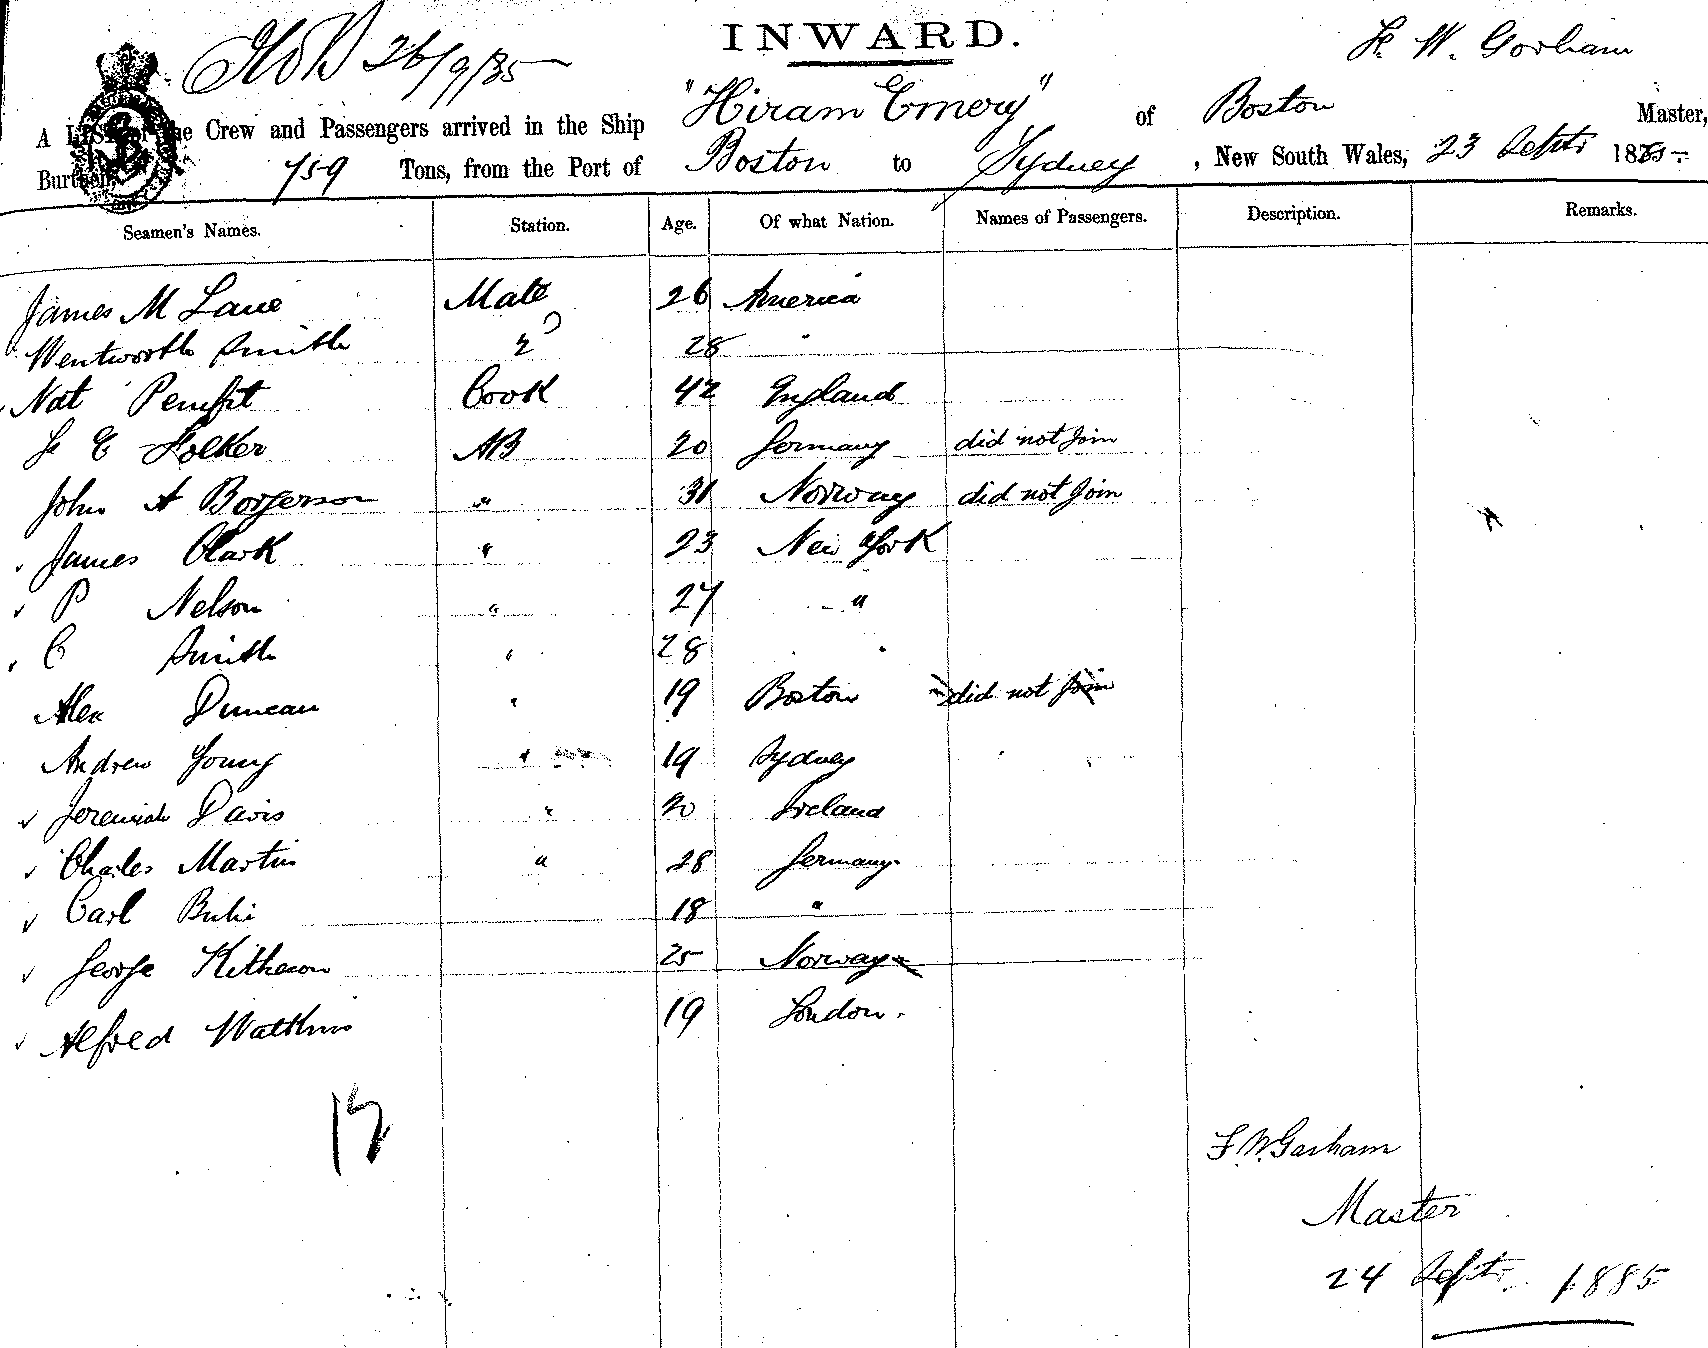 INWARD.
26/9/85
W. Gorham
A LIST of the Crew and Passengers arrived in the Ship "Hiram Emery" of Boston Master,
Burthen, 759 Tons, from the Port of Boston to Sydney, New South Wales, 23 Septr 1885
Seamen's Names. Station. Age. Of what Nation. Names of Passengers. Description. Remarks.
James M Lane Mate 26 America
Wentworth Smith 2 28 "
Nat Cook 42 England
E Folker AB 20 Germany did not join
John A Borgerson " 31 Norway did not join
James Clark " 23 New York
P Nelson " 27 "
C Smith " 28 "
Alex Duncan " 19 Boston did not join
Andrew Young " 19 Sydney
Jeremiah Davis " 20 Ireland
Charles Martin " 28 Germany
Carl 18 "
George 25 Norway
Alfred Watkins 19 London.
F. W. Gorham
Master
24 Septr. 1885